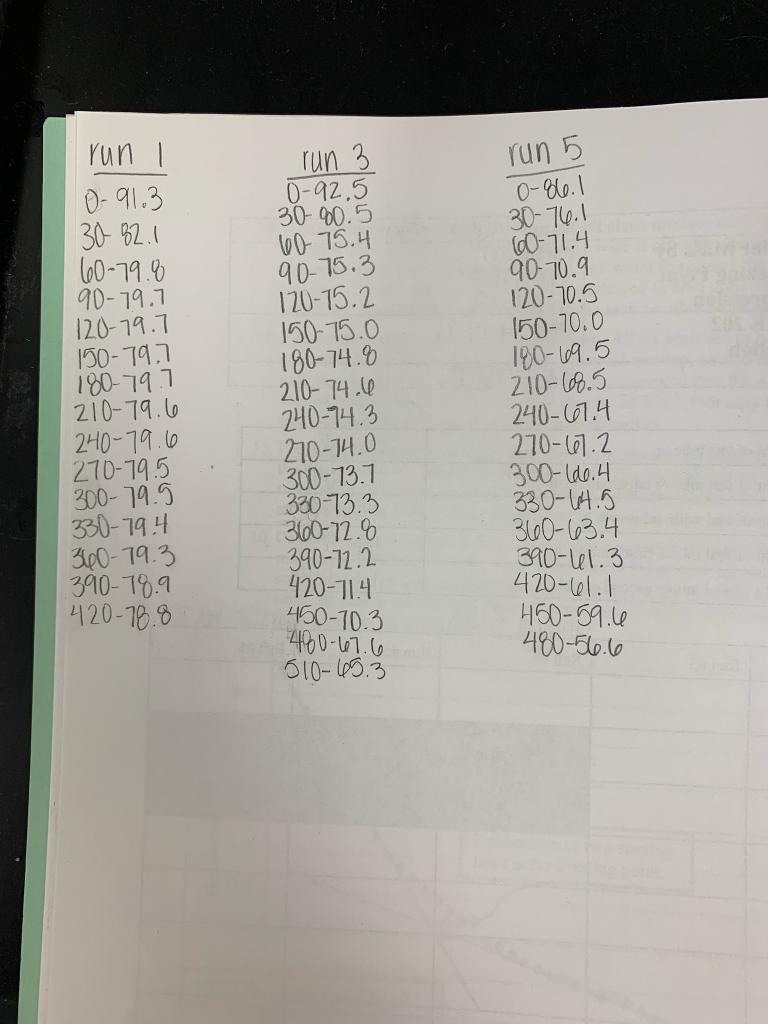 run 1
0-91.3
30-82.1
60-79.8
90-79.7
120-79.7
150-79.7
180-79.7
210-79.6
240-79.6
270-79.5
300-79.5
330-79.4
360-79.3
390-78.9
420-78.8
run 3
0-92.5
30-80.5
60-75.4
90-75.3
120-75.2
150-75.0
180-74.8
210-74.6
240-74.3
270-74.0
300-73.7
330-73.3
360-72.8
390-72.2
420-71.4
450-70.3
480-67.6
510-65.3
run 5
0-86.1
30-76.1
60-71.4
90-70.9
120-70.5
150-70.0
180-69.5
210-68.5
240-67.4
270-67.2
300-66.4
330-64.5
360-63.4
390-61.3
420-61.1
450-59.6
480-56.6